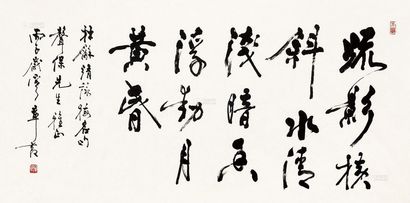 疏影横
斜水清
浅暗香
浮动月
黄昏
林和靖咏梅名句
声保先生雅正
丙子岁